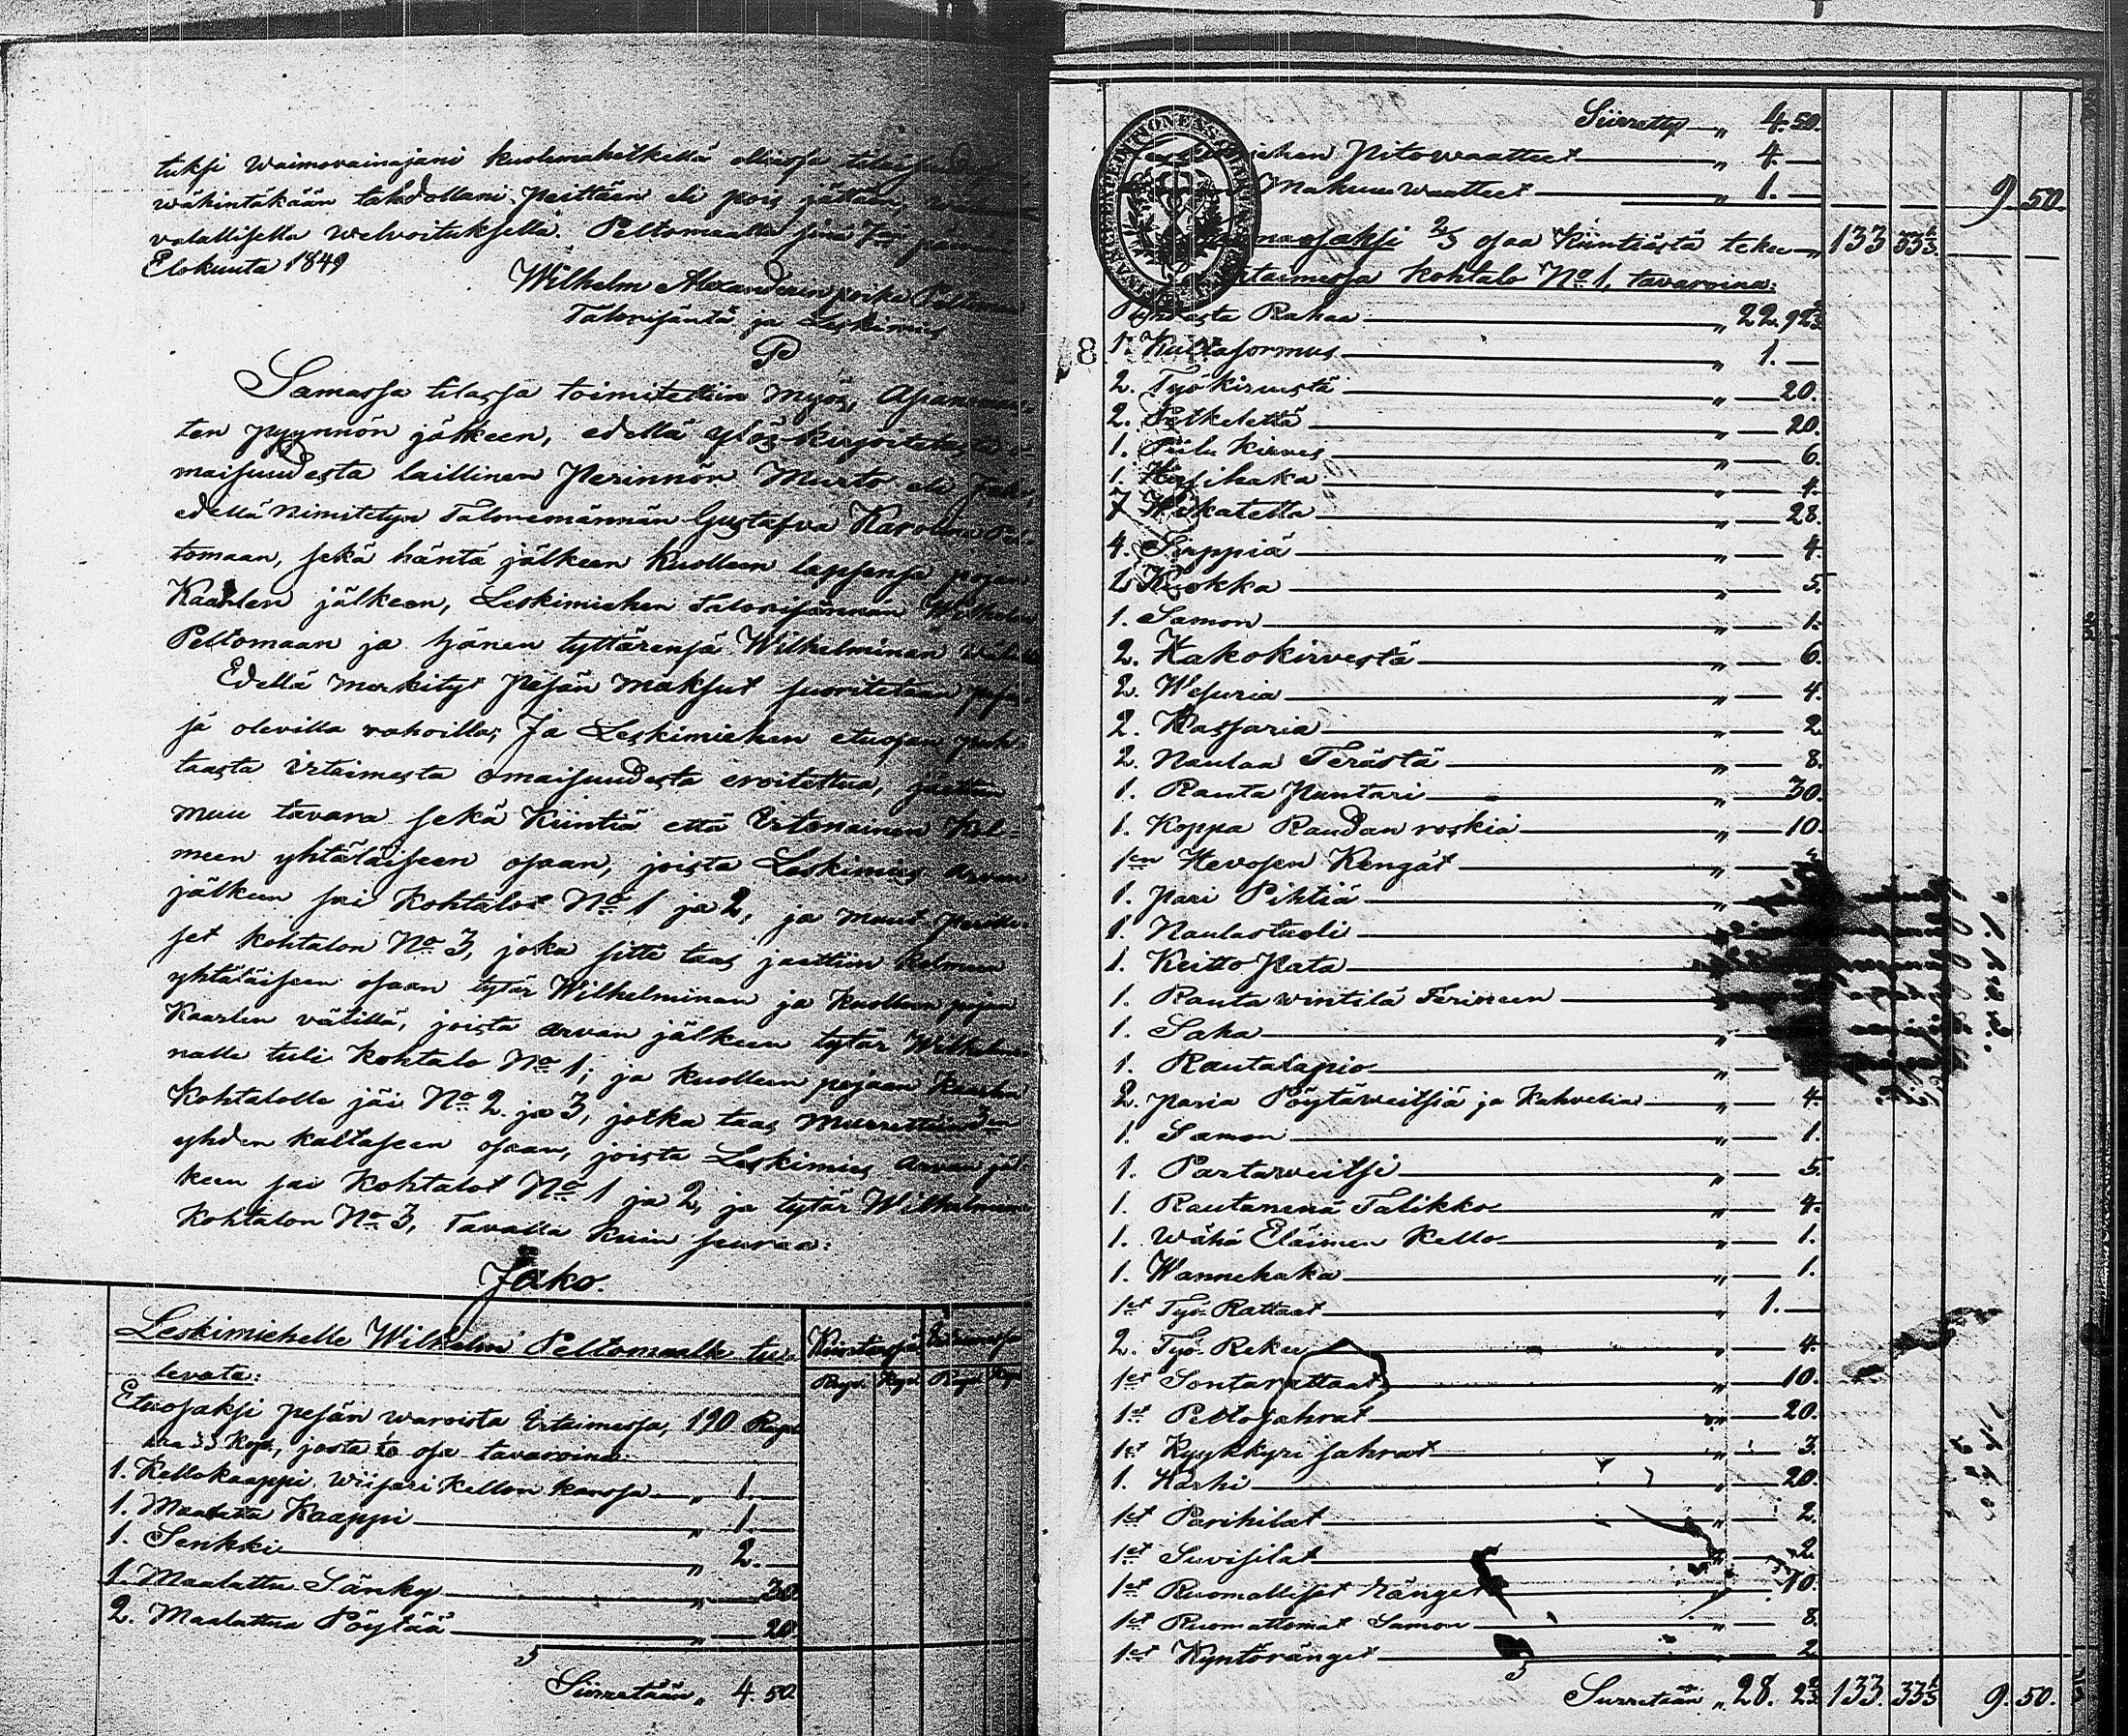 tuksi Waimovainajani kuolemahetkellä ollessa
wähintäkään tahdollani peittän eli pois jättän,
valallisella welvoituksella. Peltomaalla
Elokuuta 1849
Wilhelm Alexanderin poika Peltomaa
Talonisäntä ja Leskimies
Samassa tilassa toimitettiin myös, Asianomais-
ten pyynnön jälkeen, edellä ylös kirjoitetusta o-
maisuudesta laillinen Perinnön Muuto eli Jako,
edellä nimitetyn Talonemännän Gustafva Karolina Pel-
tomaan, sekä häntä jälkeen kuolleen lapsensa pojan
Kaarlen jälkeen, Leskimiehen Talonisännän Wilhelm
Peltomaan ja hänen tyttärensä Wilhelminan
Edellä merkityt Pesän maksut suoritetaan pesäs-
sä olevilla rahoilla; Ja Leskimiehen etuosan puh-
taasta Irtaimesta omaisuudesta eroitettua, jaettiin
muu tavara sekä Kiintiä että Irtonainen Kol-
meen yhtäläiseen osaan, joista Leskimies arvan
jälkeen sai Kohtalot No 1 ja 2, ja muut perilli-
set kohtalon No 3, joka sitte taas jaettiin kolmeen
yhtäläiseen osaan tytär Wilhelminan ja kuolleen pojan
Kaarlen välillä, joista arvan jälkeen tytär Wilhelmi-
nalle tuli Kohtalo No 1; ja kuolleen pojan Kaarlen
Kohtalolle jäi No 2 ja 3, jotka taas murrettiin 3en
yhden kaltaseen osaan, joista Leskimies arvan jäl-
keen sai Kohtalot No 1 ja 2, ja tytär Wilhelmina
Kohtalon No 3, Tavalla kuin seuraa:
Jako.
Leskimiehelle Wilhelm Peltomaalle tu-
levata:
Kiinteässä Irtaimessa
Rupl. Kop. Rupl. Kop.
Etuosaksi pesän waroista Irtaimessa, 190 Rupl
33 Kop., josta osa tavaroina:
1. Kellokaappi wiisari Kellon kanssa „ 1.—
1. Maalattu Kaappi „ 1.—
1. Senkki „ 2.—
1. Maalattu Sänky „ — 30
2. Maalattua Pöytää „ — 20
Siirretään „ 4. 50
Siirretty „ 4. 50.
Pitowaatteet „ 4.—
Makuuwaatteet „ 1.— 9. 50.
2/3 osaa Kiintiästä tekee 133 33 1/3
Irtaimessa Kohtalo No 1, tavaroina:
Rahaa „ 22. 92 2/3
1. Kultasormus „ 1.—
2. Työkirvestä „ — 20.
2. Petkelettä „ — 20.
1. Piilu Kirves „ — 6.
1. Hysihaka „ — 4.
7 Wikatetta „ — 28.
4. Sirppiä „ — 4.
2 Kuokka „ — 5.
1. Samon „ — 1.
2. Kakokirvestä „ — 6.
2. Wesuria „ — 4.
2. Kassaria „ — 2.
2. Naulaa Terästä „ — 8.
1. Rauta Puntari „ — 30.
1. Koppa Raudan roskia „ — 10.
1en Hevosen Kengät
1. pari Pihtiä
1. Naulastuoli
1. Keitto Pata
1. Rauta wintilä Terineen
1. Saha
1. Rautalapio
2. paria Pöytäveitsiä ja Kahvelia „ — 4.
1. Samon „ — 1.
1. Partaveitsi „ — 5.
1. Rautanenä Talikko „ — 4.
1. Wähä Eläimen Kello „ — 1.
1. Wannehaka „ — 1.
1et Työ Rattaat „ 1.—
2. Työ Rekee „ — 4.
1et Sontarattaat „ — 10.
1et Peltosahrat „ — 20.
1et Kyykkyri sahrat „ — 3.
1. Karhi „ — 20.
1et Parihilat „ — 2.
1et Suvisilat „ — 2.
1et Ruomalliset Länget „ — 10.
1et Ruomattomat Samon „ — 8.
1et Kyntöränget „ — 2
Siirretään „ 28. 2 2/3 133. 33 1/3 9. 50.